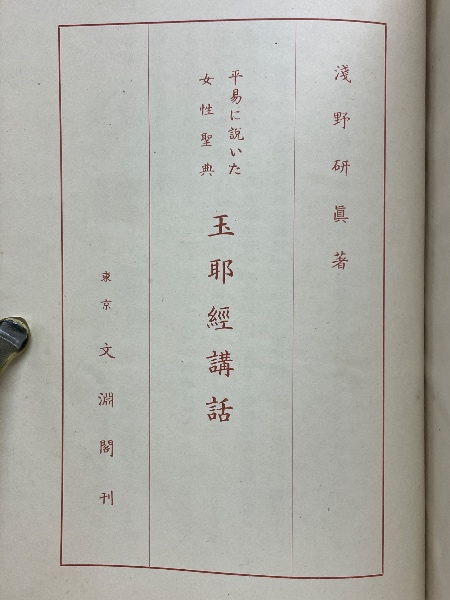 淺野研眞著
平易に說いた
女性聖典
玉耶經講話
東京 文淵閣刊